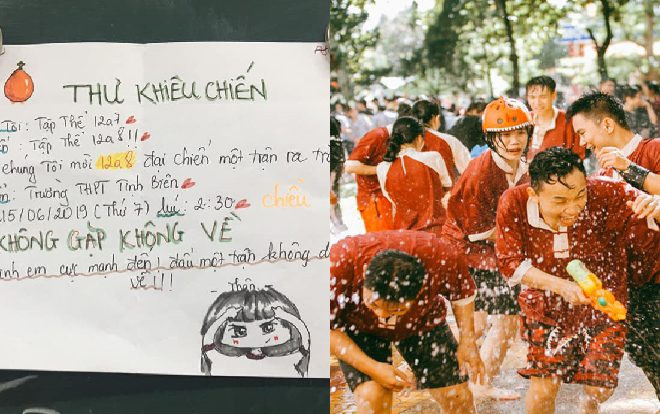 THƯ KHIÊU CHIẾN
Tôi: Tập Thể 12a7
: Tập Thể 12a8!!
chúng Tôi mời 12a8 đại chiến một trận ra tr
: Trường THPT Tịnh Biên
15/06/2019 (Thứ 7) lúc: 2:30 chiều
KHÔNG GẶP KHÔNG VỀ
anh em cực mạnh đến! đấu một trận không
VỀ!!!